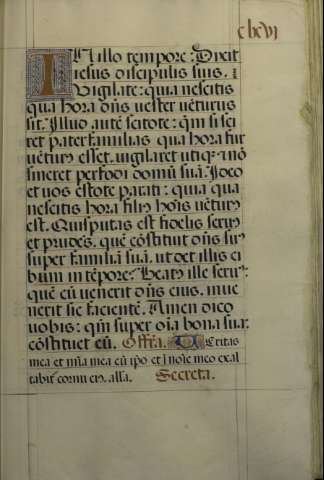 clxvi
IN illo tempore: Dixit
iesus discipulis suis.
Vigilate: quia nescitis
qua hora dñs uester uẽturus
sit. Illud autẽ scitote: qm̃ si sci
ret paterfamilias qua hora fur
uẽturus esset, uigilaret utiq: et nõ
sineret perfodi domũ suã. Ideo
et uos estote parati: quia qua
nescitis hora filius hoĩs uẽturus
est. Quis putas est fidelis seruus
et prudẽs, quẽ cõstituit dñs suus
super familiã suã, ut det illis ci
bum in tẽpore? Beatus ille seruus:
quẽ cũ uenerit dñs eius, inue
nerit sic faciẽtẽ. Amen dico
uobis: qm̃ super oĩa bona sua
cõstituet eũ. Offra. Ueritas
mea et mĩa mea cũ ipo et ĩ noĩe meo exal
tabit̃ cornu eius. alla. Secreta.